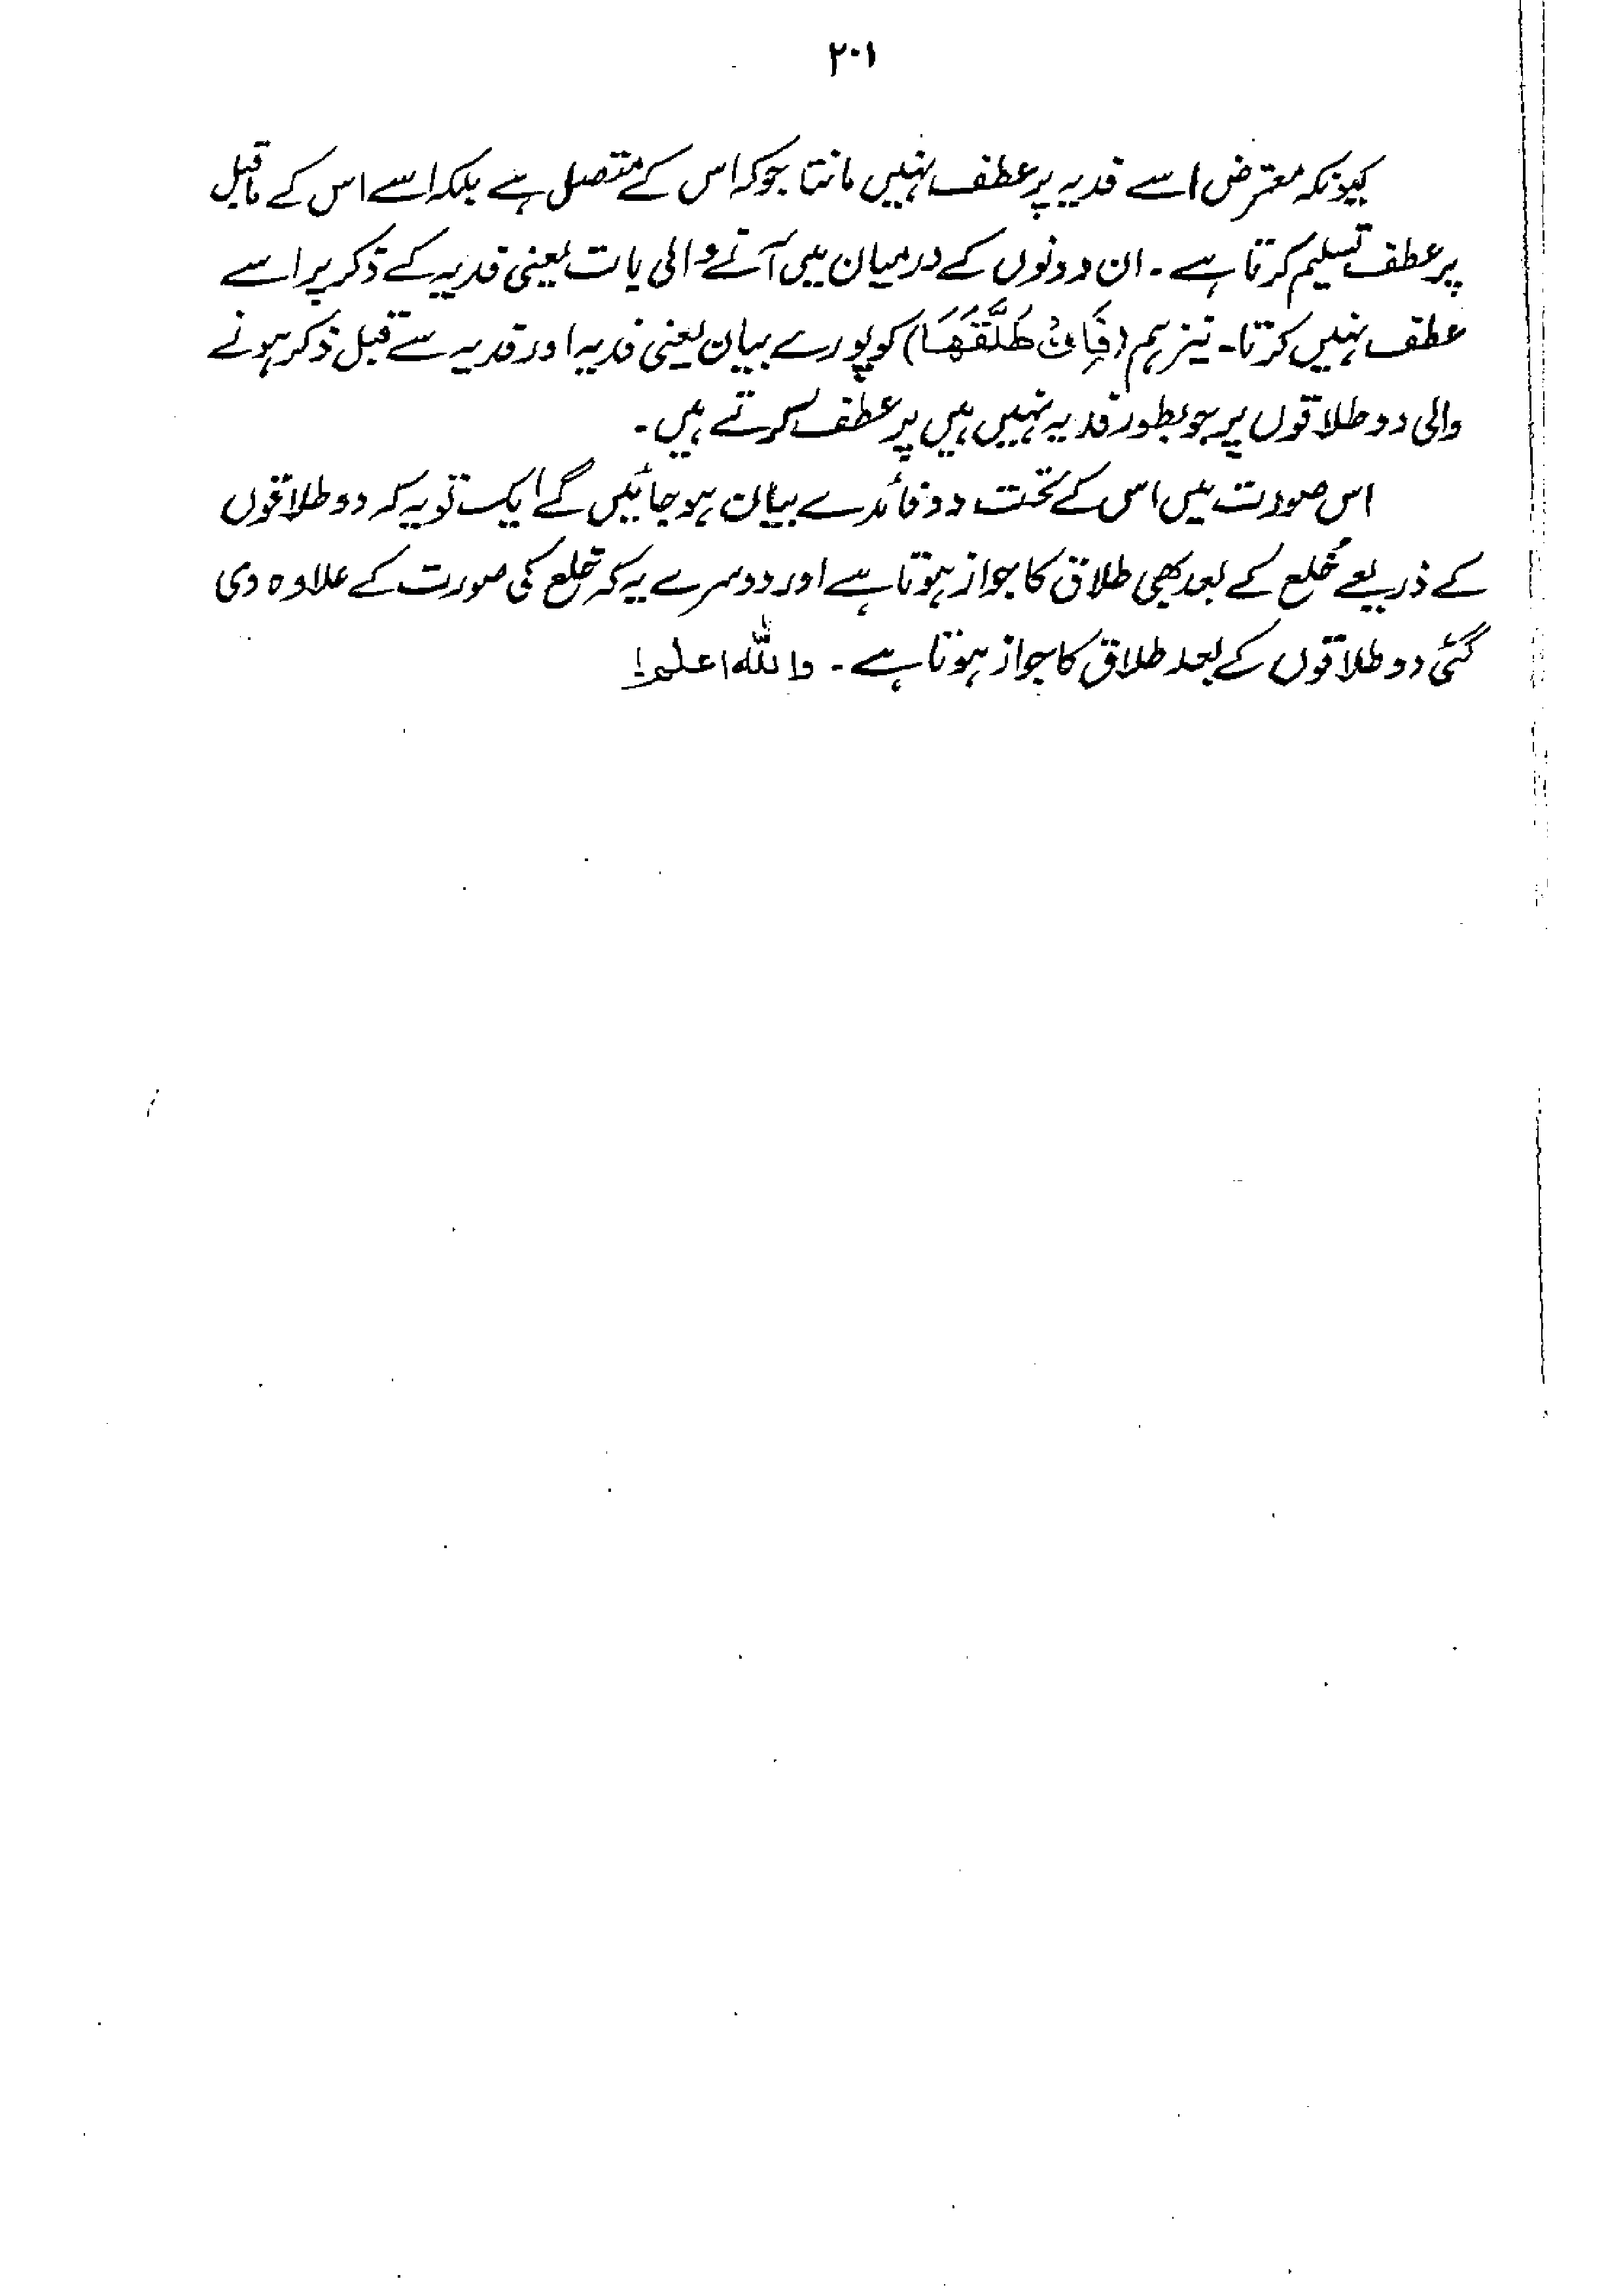 ۲۰۱
کیونکہ معترض اسے فدیہ پر عطف نہیں مانتا جو کہ اس کے متصل ہے بلکہ اسے اس کے ماقبل
پر عطف تسلیم کرتا ہے۔ ان دونوں کے درمیان میں آنے والی بات یعنی فدیہ کے ذکر پر اسے
عطف نہیں کرتا۔ نیز ہم (فَاِنْ طَلَّقَهَا) کو پورے بیان یعنی فدیہ اور فدیہ سے قبل ذکر ہونے
والی دو طلاقوں پر جو بطور فدیہ نہیں ہیں پر عطف کرتے ہیں۔
اس صورت میں اس کے تحت دو فائدے بیان ہو جائیں گے ایک تو یہ کہ دو طلاقوں
کے ذریعے خُلع کے بعد بھی طلاق کا جواز ہوتا ہے اور دوسرے یہ کہ خلع کی صورت کے علاوہ دی
گئی دو طلاقوں کے بعد طلاق کا جواز ہوتا ہے۔ واللہ اعلم!